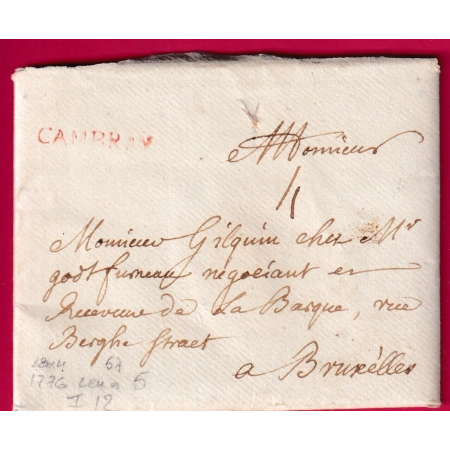 CAMBRAY
Monsieur
Monsieur Gilquin chez Mr
godt furneau négociant et
Receveur de La Barque, rue
Berghe Straet
a Bruxélles
67
1776 5
I 12